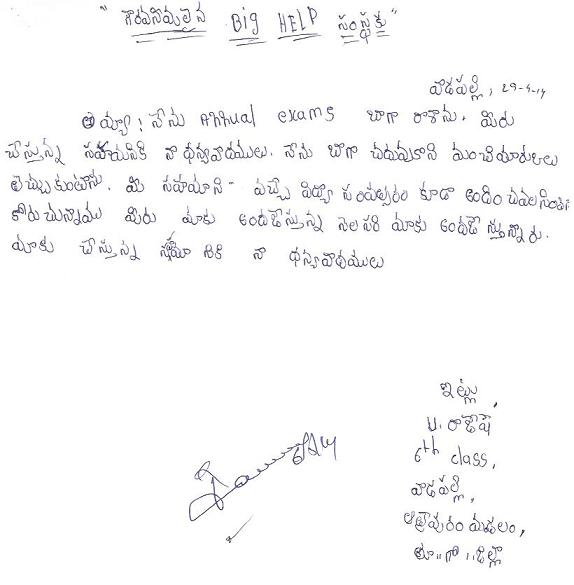 "గౌరవనీయులైన Big HELP సంస్థకు"
వాడపల్లి, 29-4-14
అయ్యా! నేను Annual exams బాగా రాశాను. మీరు
చేస్తున్న సహాయనికి నా ధన్యవాదములు. నేను బాగా చదువుకొని మంచి మార్కులు
తెచ్చుకుంటాను. మీ సహయాని వచ్చే విద్యా సంవత్సరం కూడా అందించవలసిందిగా
కోరుచున్నాము మీరు మాకు అందజేస్తున్న నెల సరి మాకు అందజేస్తున్నారు.
మాకు చేస్తున్న నా ధన్యవాదములు
ఇట్లు,
U. రాజేష్
6th class,
వాడపల్లి,
ఆత్రేపురం మండలం,
తూ..గో..జిల్లా